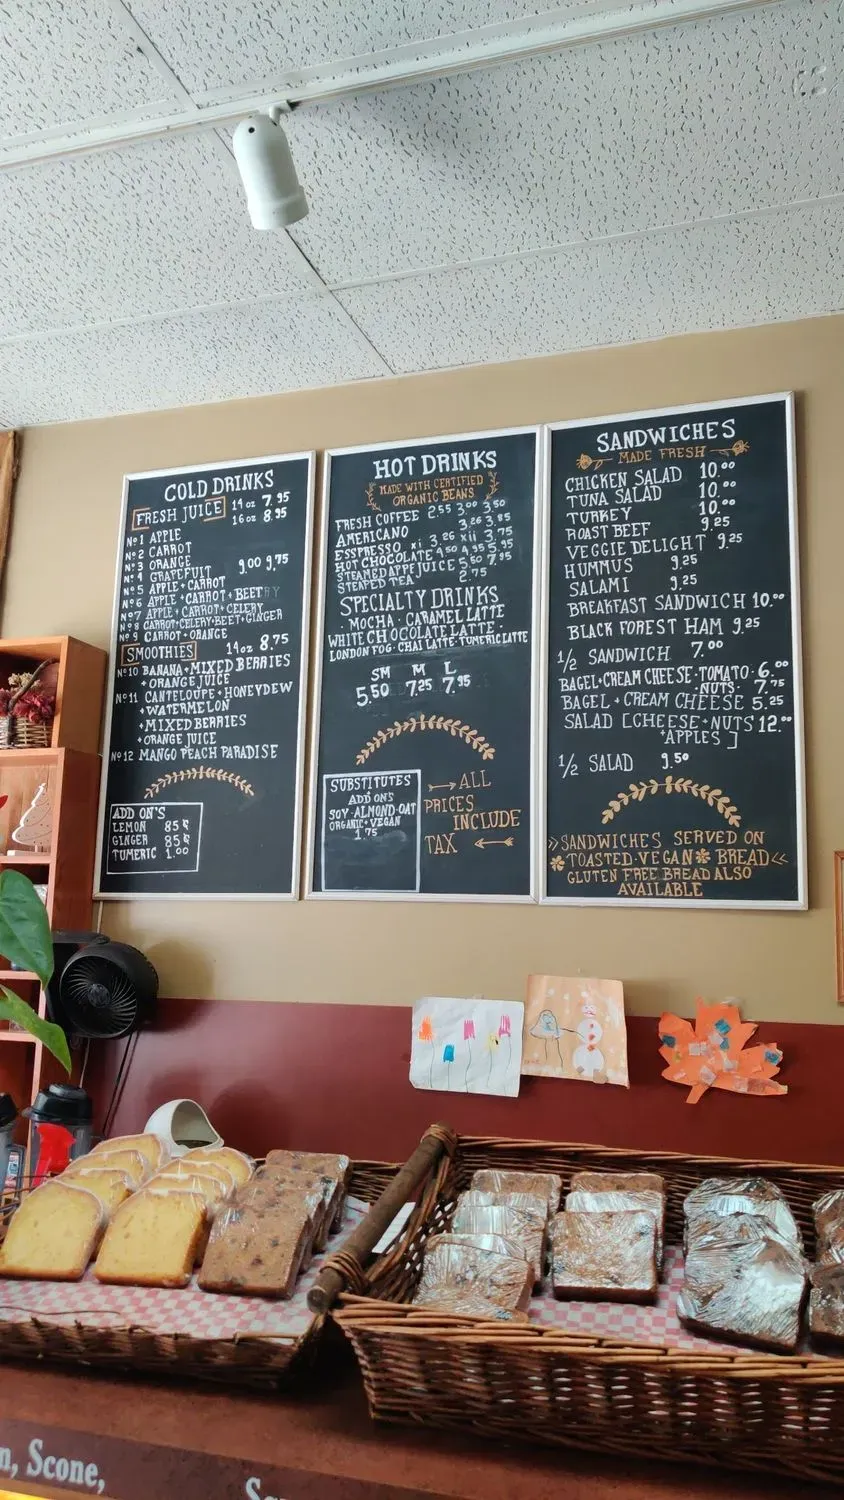 COLD DRINKS
FRESH JUICE 14oz 7.95
16oz 8.95
Nº1 APPLE
Nº2 CARROT
Nº3 ORANGE
Nº4 GRAPEFRUIT 9.00 9.75
Nº5 APPLE+CARROT
Nº6 APPLE+CARROT+BEET
Nº7 APPLE+CARROT+CELERY
Nº8 CARROT+CELERY+BEET+GINGER
Nº9 CARROT+ORANGE
SMOOTHIES 14oz 8.75
Nº10 BANANA+MIXED BERRIES
+ORANGE JUICE
Nº11 CANTELOUPE+HONEYDEW
+WATERMELON
+MIXED BERRIES
+ORANGE JUICE
Nº12 MANGO PEACH PARADISE
ADD ON'S
LEMON 85¢
GINGER 85¢
TUMERIC 1.00
HOT DRINKS
MADE WITH CERTIFIED
ORGANIC BEANS
FRESH COFFEE 2.55 3.00 3.50
AMERICANO 3.26 3.85
ESPRESSO xi 3.26 xii 3.75
HOT CHOCOLATE 4.50 4.95 5.95
STEAMED APPE JUICE 5.50 7.95
STEAPED TEA 2.75
SPECIALTY DRINKS
· MOCHA · CARAMEL LATTE
WHITE CHOCOLATE LATTE ·
LONDON FOG · CHAI LATTE · TUMERIC LATTE
SM M L
5.50 7.25 7.95
SUBSTITUTES
ADD ON'S
SOY · ALMOND · OAT
ORGANIC + VEGAN
1.75
ALL
PRICES
INCLUDE
TAX
SANDWICHES
MADE FRESH
CHICKEN SALAD 10.00
TUNA SALAD 10.00
TURKEY 10.00
ROAST BEEF 9.25
VEGGIE DELIGHT 9.25
HUMMUS 9.25
SALAMI 9.25
BREAKFAST SANDWICH 10.00
BLACK FOREST HAM 9.25
1/2 SANDWICH 7.00
BAGEL+CREAM CHEESE·TOMATO· 6.00
·NUTS· 7.75
BAGEL+CREAM CHEESE 5.25
SALAD [CHEESE+NUTS 12.00
+APPLES]
1/2 SALAD 9.50
SANDWICHES SERVED ON
TOASTED·VEGAN BREAD
GLUTEN FREE BREAD ALSO
AVAILABLE
n, Scone,